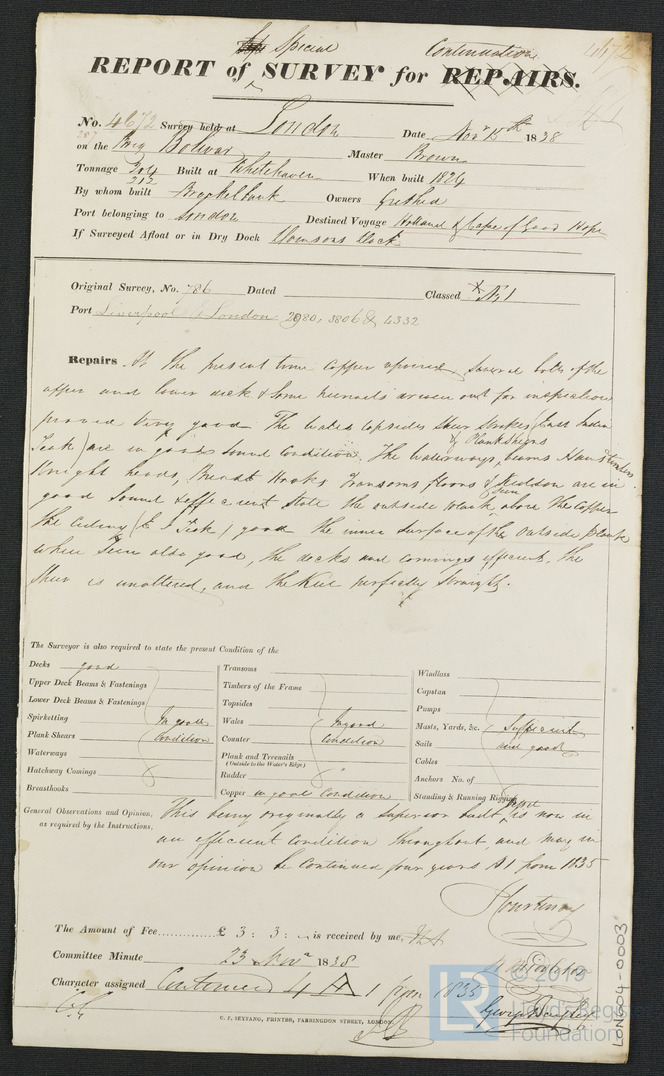 Special Continuation 4672
REPORT of SURVEY for REPAIRS.
No. 4672 Survey held at London Date Novr 15th 1838
on the Brig Bolivar Master Brown
Tonnage 304 Built at Whitehaven When built 1824
212
By whom built Brocklebank Owners
Port belonging to London Destined Voyage Holland & Cape of Good Hope
If Surveyed Afloat or in Dry Dock Thomsons Dock
Original Survey, No. 786 Dated Classed A1
Port Liverpool & London 2980, 3806 & 4332
Repairs. At the present time Copper several bolts of the
upper and lower deck & some treenails driven out for inspection
proved very good. The Wales topsides Sheer Strakes (East India
Teak) are in good sound Condition. The Waterways, beams
& Plankshears
Knight heads, Breast Hooks Transoms floors & Keelson are in
good Sound & efficient State the outside plank above the Copper
the Ceiling (E I Teak) good the inner surface of the outside plank
where seen also good, the decks and comings efficient, the
Sheer is unaltered, and the Keel perfectly straight.
The Surveyor is also required to state the present Condition of the
Decks good
Upper Deck Beams & Fastenings
Lower Deck Beams & Fastenings
Spirketting In good
Plank Shears Condition
Waterways
Hatchway Comings
Breasthooks
Transoms
Timbers of the Frame
Topsides
Wales In good
Counter Condition
Plank and Treenails
(Outside to the Water's Edge)
Rudder
Copper in good Condition
Windlass
Capstan
Pumps
Masts, Yards, &c. Sufficient
Sails and good
Cables
Anchors No. of
Standing & Running Rigging
General Observations and Opinion,
as required by the Instructions,
This being originally a superior built is now in
an efficient condition throughout and may in
our opinion be Continued four years A1 from 1835
Courtenay
The Amount of Fee £ 3 : 3 : is received by me,
Committee Minute 23 Novr 1838
Character assigned Continued 4 A 1 from 1835
George Bayley
C. F. SEYFANG, PRINTER, FARRINGDON STREET, LONDON.
LON504-0003
LR
© 2019
Lloyd's Register
Foundation